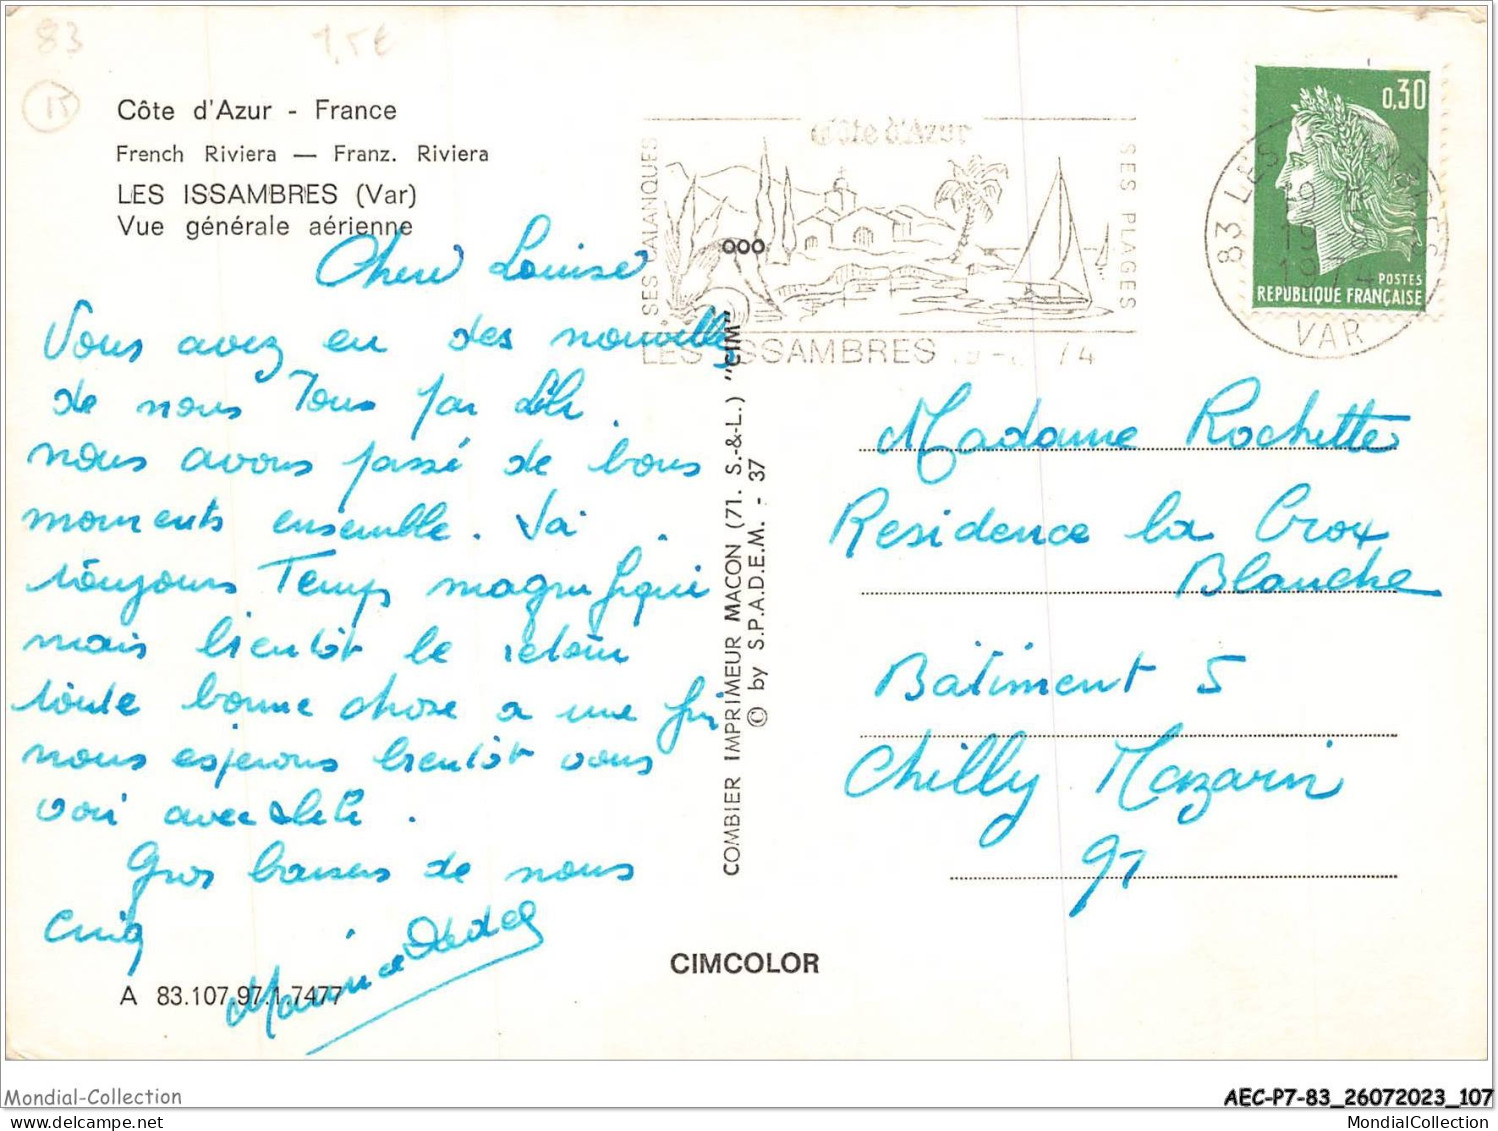 83
1,5€
Côte d'Azur - France
French Riviera — Franz. Riviera
LES ISSAMBRES (Var)
Vue générale aérienne
Chere Louise
Vous avez eu des nouvelles
de nous Tous par Lili.
nous avons passé de bons
moments ensemble. Ici
toujours Temps magnifique
mais bientôt le retour
toute bonne chose a une fin
nous esperons bientôt vous
voir avec
Gros baisers de nous
cinq
Maurice Dédée
A 83.107.97.1.7477
COMBIER IMPRIMEUR MACON (71. S.-&-L.) "CIM"
© by S.P.A.D.E.M. - 37
CIMCOLOR
Côte d'Azur
SES CALANQUES
SES PLAGES
LES ISSAMBRES
83 LES ISSAMBRES
1974
VAR
0,30
POSTES
REPUBLIQUE FRANÇAISE
Madame Rochette
Residence la Croix
Blanche
Bâtiment 5
Chilly Mazarin
91
Mondial-Collection
AEC-P7-83_26072023_107
MondialCollection